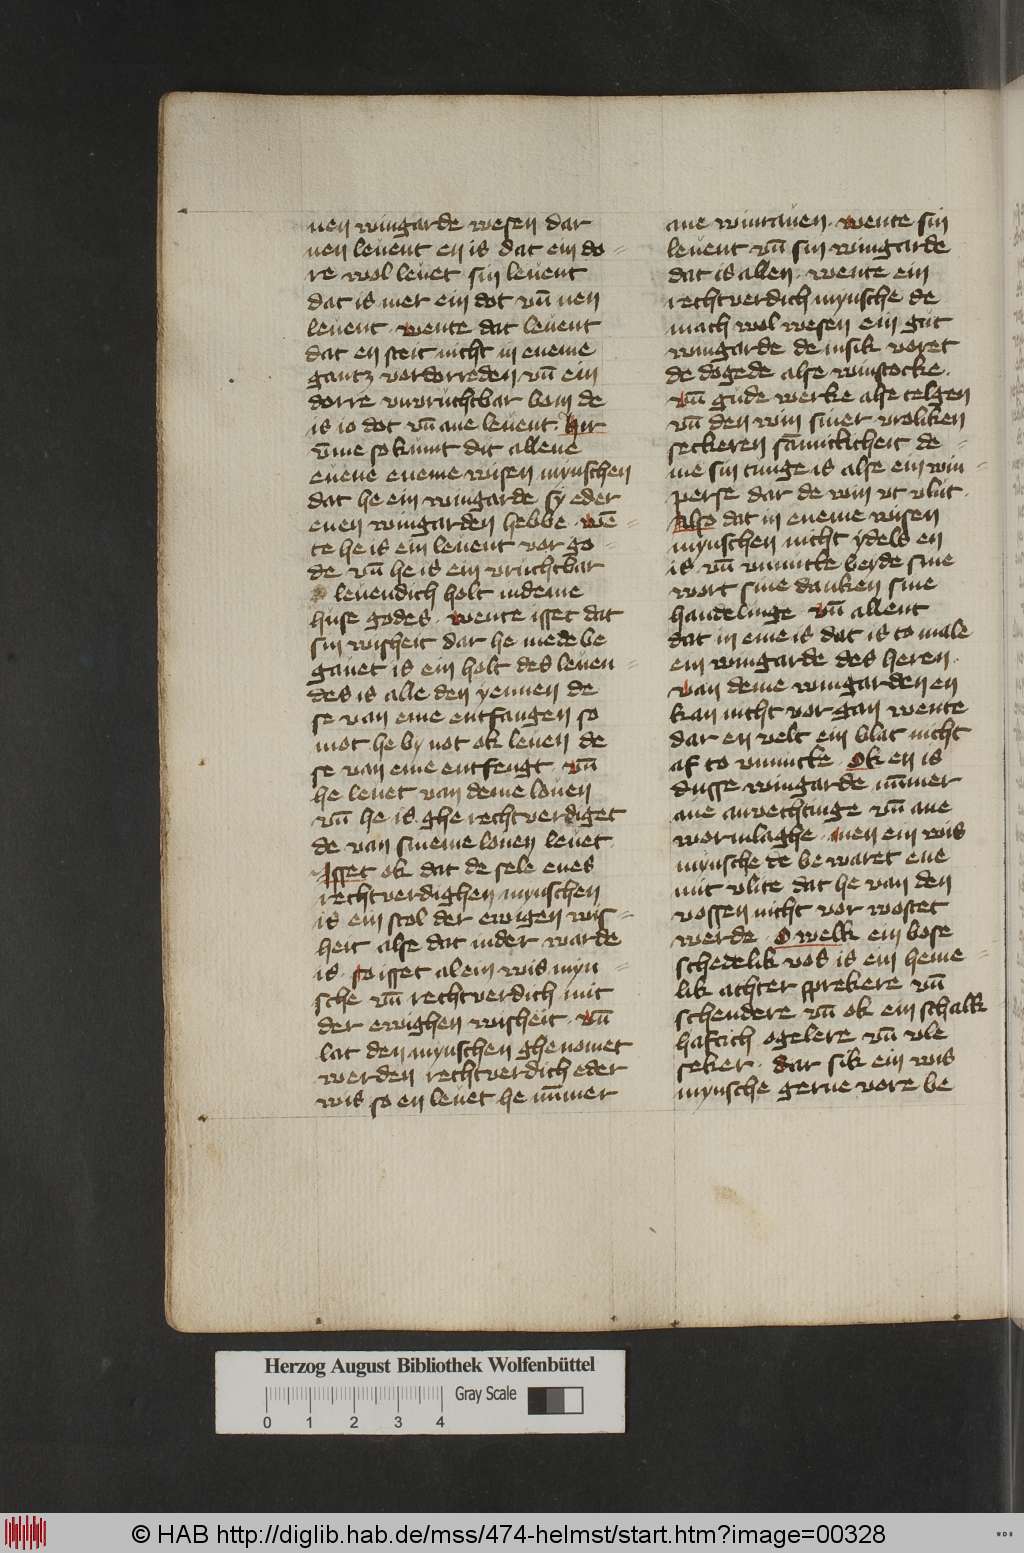 nen wingarde wesen dar
nen leuent en is dat ein do=
re wol leuet sin leuent
dat is mer ein dot vn̄ nen
leuent · wente dat leuent
dat en steit nicht in eneme
gantz vordorreden vn̄ ein
dorre vnvruchtbar bom de
is io dot vn̄ ane leuent · hir
v̄me so kumt dit allene
euene eneme wisen mynschen
dat he ein wingarde sy eder
enen wingarden hebbe · wē=
te he is ein leuent vor go=
de vn̄ he is ein vruchtbar
leuendich holt indeme
huse godes · wente isset dat
sin wisheit dar he mede be
gauet is ein holt des leuen=
des is alle den yennen de
se van eme entfangen so
mot he by not ok leuen de
se van eme entfengt · vn̄
he leuet van deme louen
vn̄ he is ghe rechtverdiget
de van sineme louen leuet
Isset ok dat de sele enes
rechtverdighen mynschen
is ein stol der ewigen wis=
heit alse dat inder warde
is · so isset al ein wis myn=
sche vn̄ rechtverdich mit
der ewighen wisheit · vn̄
lat den mynschen ghe nomet
werden rechtverdich eder
wis so en leuet he nūmer
ane wintauen · wente sin
leuent vn̄ sin wingarde
dat is allen · wente ein
rechtverdich mynsche de
mach wol wesen ein gut
wingarde de insik voret
de dogede alse winstocke ·
vn̄ gude werke alse telgen
vn̄ den win siner vroliken
seckeren sāmitticheit de=
me sin tunge is alse ein win=
perse dar de win vt vlut ·
Also dat in eneme wisen
mynschen nicht ydels en
is · vn̄ vmmitte beyde sine
wort sine danken sine
handelinge vn̄ allent
dat in eme is dat is to male
ein wingarde des heren ·
van deme wingarden en
kan nicht vor gan wente
dar en velt ein blat nicht
af to vnnutte · Ok en is
dusse wingarde nūmer
ane anvechtinge vn̄ ane
wormlaghe · men ein wis
mynsche de be waret ene
mit vlite dat he van den
vossen nicht vor wostet
werde · O welk ein bose
schedelik vos is ein heme=
lik achter sprekere vn̄
schendere vn̄ ok ein schalk
haftich ogelere vn̄ vle
seker · dar sik ein wis
mynsche gerne vore be
Herzog August Bibliothek Wolfenbüttel
Gray Scale
0 1 2 3 4
© HAB http://diglib.hab.de/mss/474-helmst/start.htm?image=00328